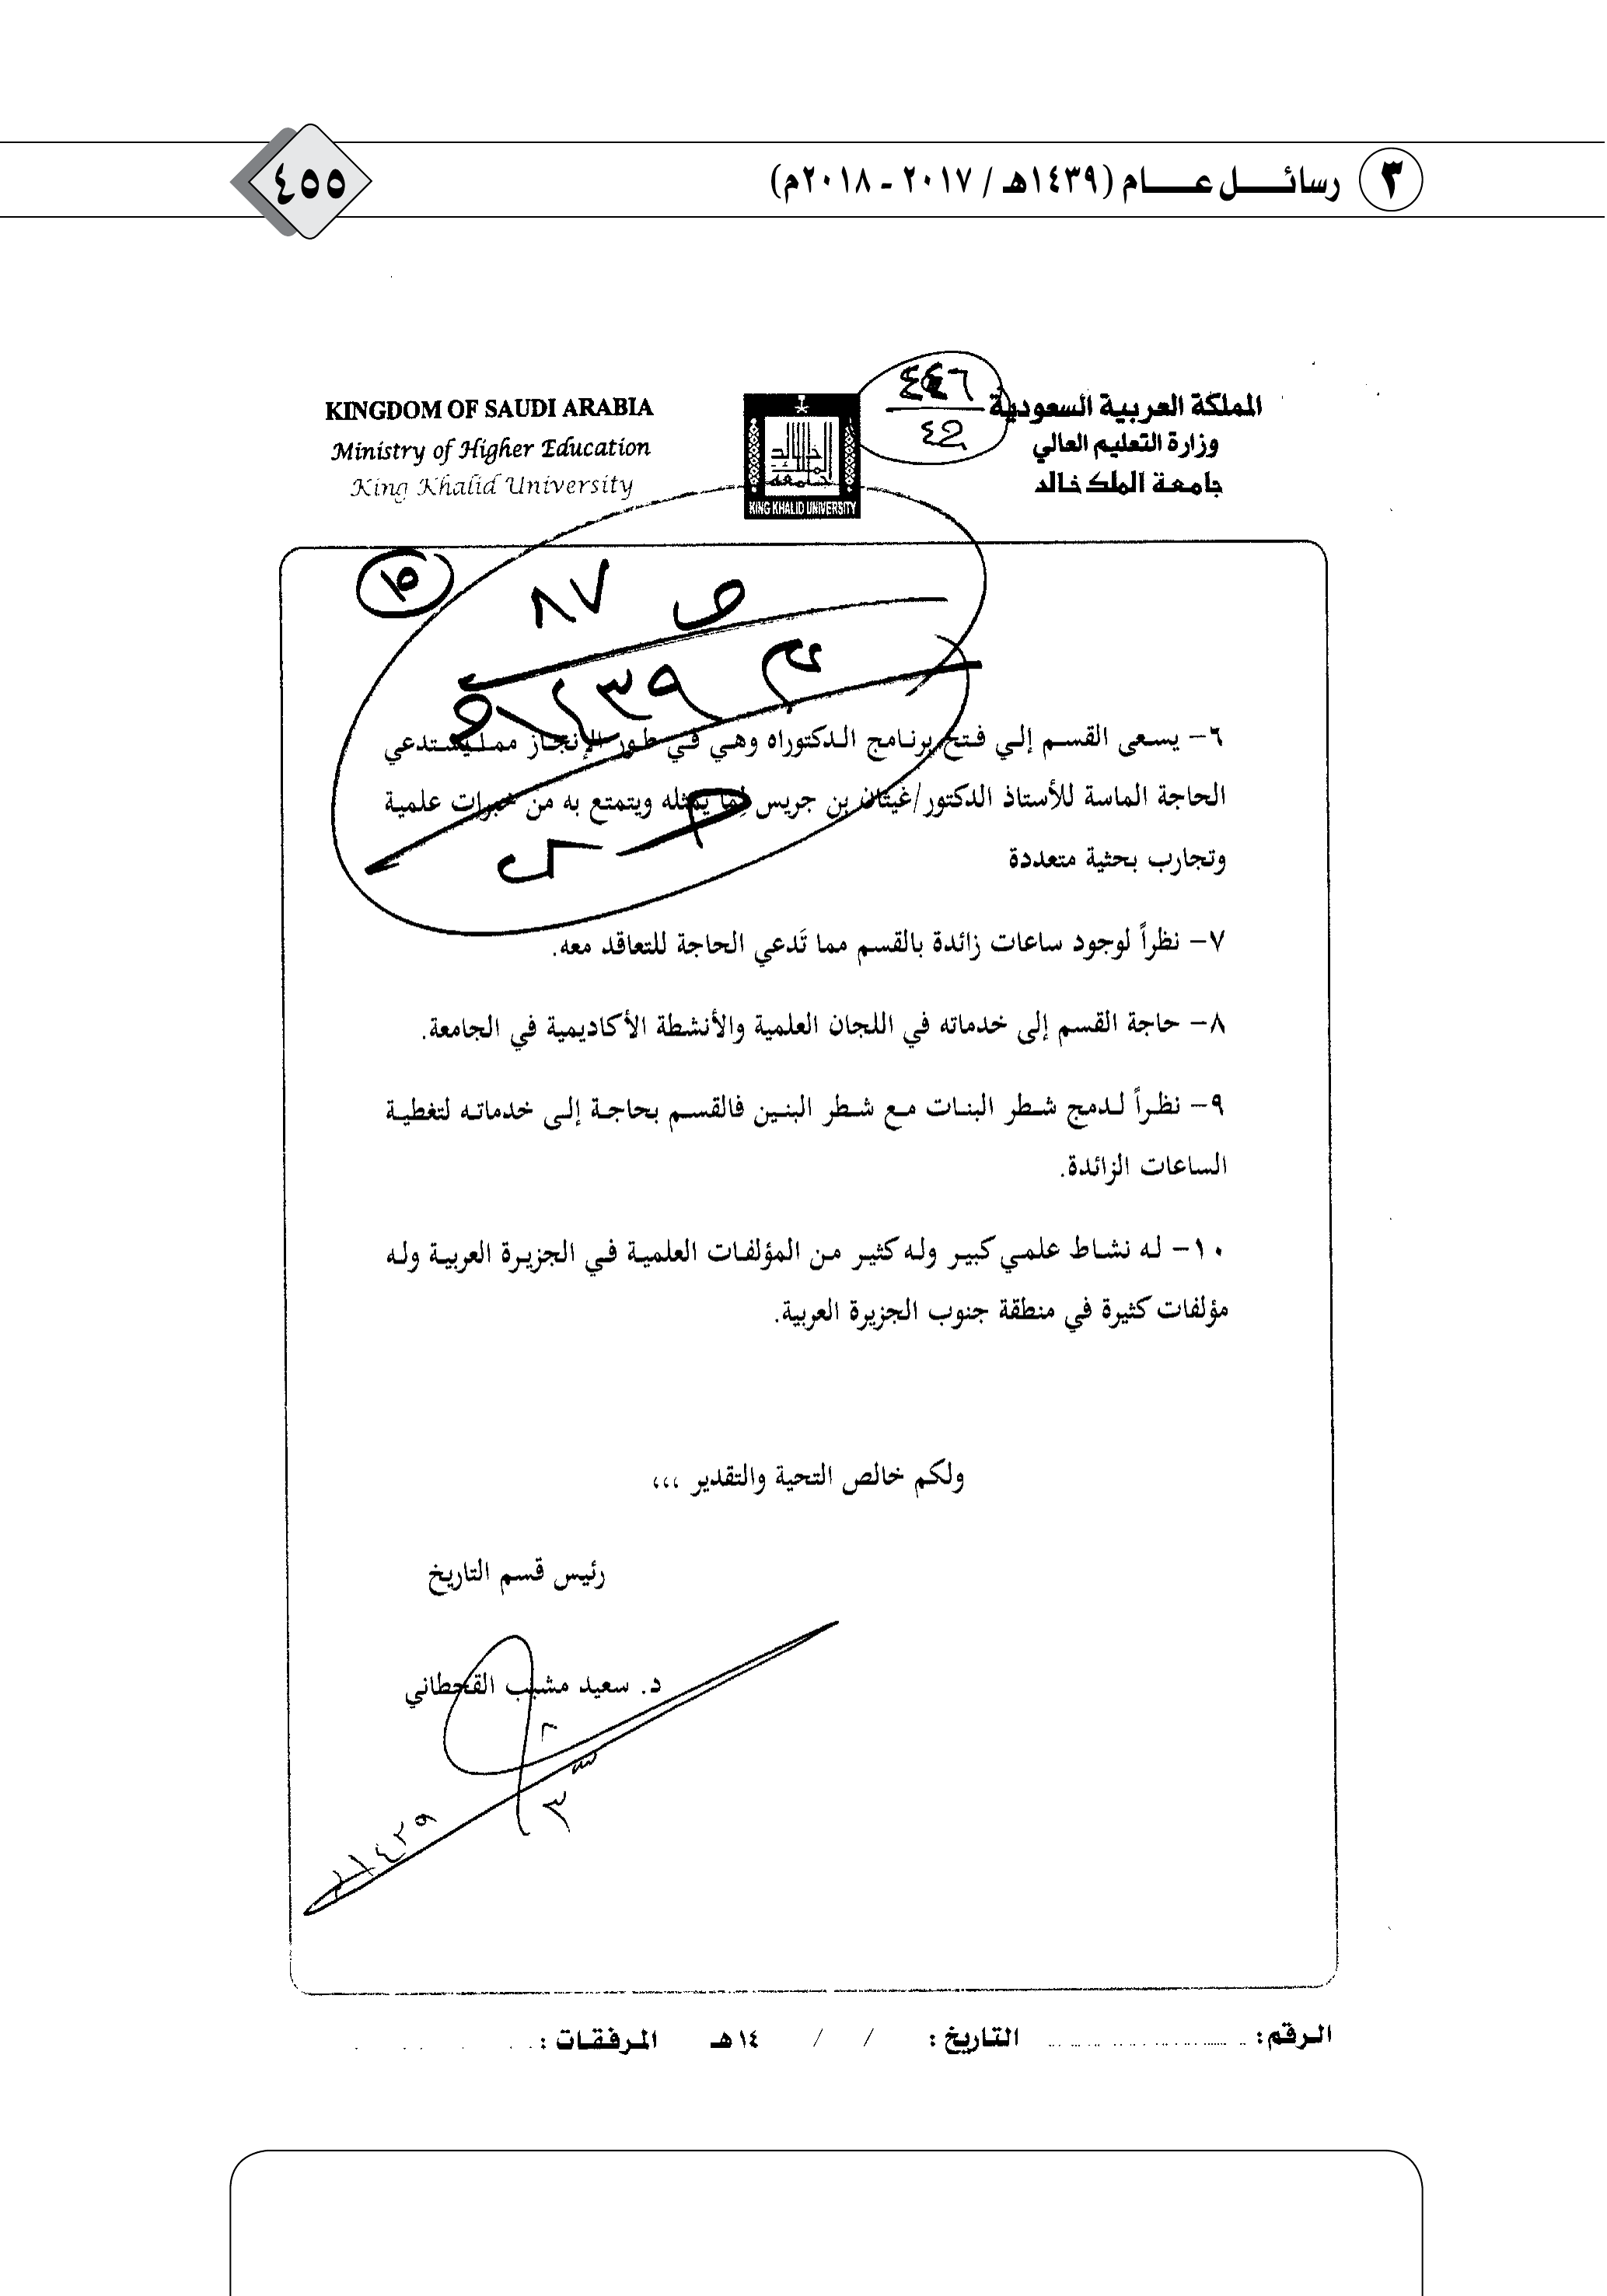 ٣ رسائل عام (١٤٣٩هـ / ٢٠١٧ - ٢٠١٨م)
٤٥٥
المملكة العربية السعودية
وزارة التعليم العالي
جامعة الملك خالد
KINGDOM OF SAUDI ARABIA
Ministry of Higher Education
King Khalid University
KING KHALID UNIVERSITY
١٥
٨٧
٦- يسعى القسم إلي فتح برنامج الدكتوراه وهي في طور الإنجاز مما يستدعي
الحاجة الماسة للأستاذ الدكتور/غيثان بن جريس لِما يمثله ويتمتع به من خبرات علمية
وتجارب بحثية متعددة
٧- نظراً لوجود ساعات زائدة بالقسم مما تَدعي الحاجة للتعاقد معه.
٨- حاجة القسم إلى خدماته في اللجان العلمية والأنشطة الأكاديمية في الجامعة.
٩- نظراً لدمج شطر البنات مع شطر البنين فالقسم بحاجة إلى خدماته لتغطية
الساعات الزائدة.
١٠- له نشاط علمي كبير وله كثير من المؤلفات العلمية في الجزيرة العربية وله
مؤلفات كثيرة في منطقة جنوب الجزيرة العربية.
ولكم خالص التحية والتقدير ،،،
رئيس قسم التاريخ
د. سعيد مشبب القحطاني
الرقم: التاريخ: / / ١٤هـ المرفقات: